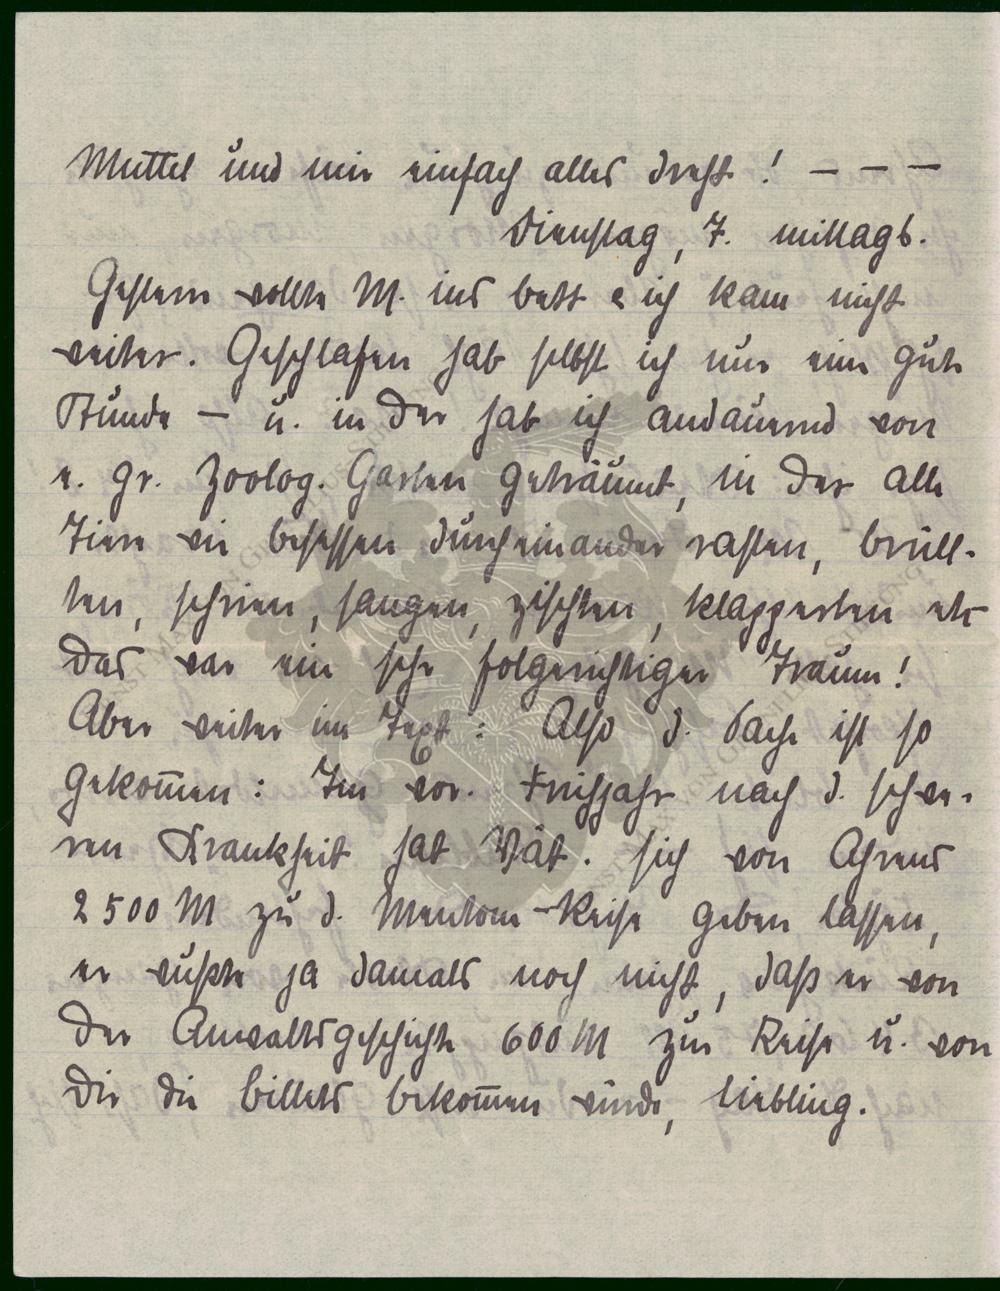 Muttel und mir einfach alles dreht! — — —
Dienstag, 7. mittags.
Gestern wollte M. ins Bett & ich kam nicht
weiter. Geschlafen hab selbst ich nur eine gute
Stunde — u. in der hab ich andauernd von
e. gr. Zoolog. Garten geträumt, in der alle
Tiere wie besessen durcheinander rasten, brüll-
ten, schrien, sangen, zischten, klapperten etc
Das war ein sehr folgerichtiger Traum!
Aber weiter im Text: Also d. Sache ist so
gekom̄en: Im vor. Frühjahr nach d. schwe-
ren Krankheit hat Vät. sich von Ahrens
2500 M zu d. Mentone-Reise geben lassen,
er wußte ja damals noch nicht, daß er von
der Anwaltsgeschichte 600 M zur Reise u. von
Dir die Billets bekom̄en würde, Liebling.